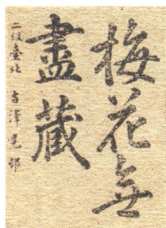 梅花無
盡藏